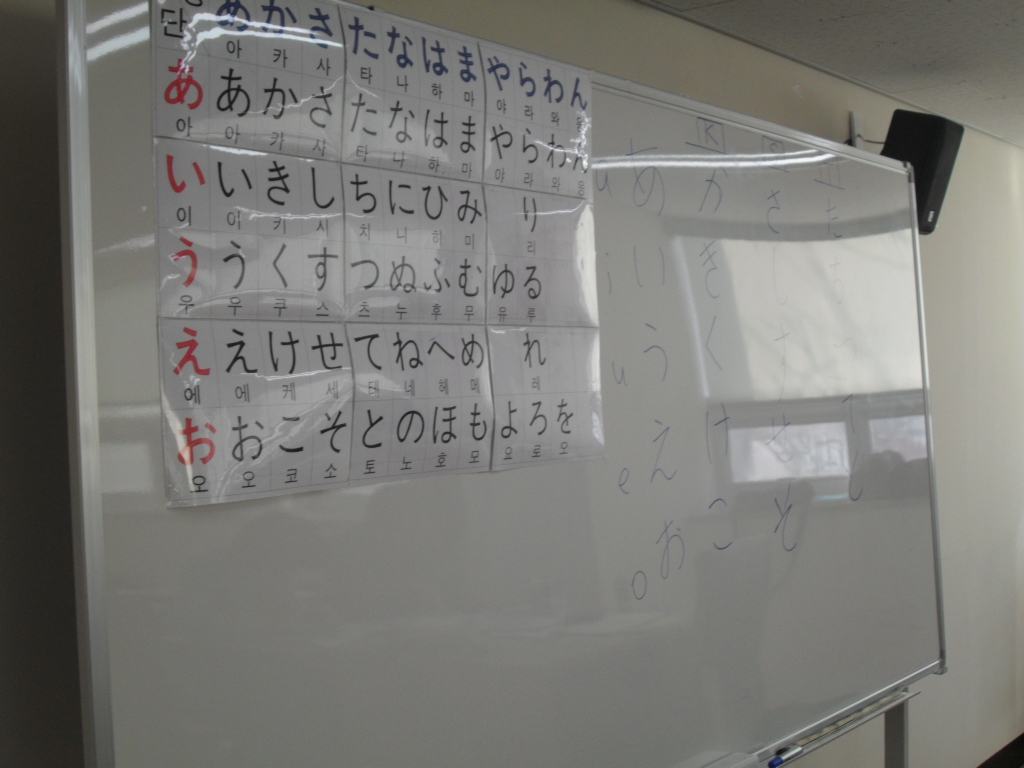 단 あ か さ た な は ま や ら わ ん
아 카 사 타 나 하 마 야 라 와 응
あ あ か さ た な は ま や ら わ ん
아 아 카 사 타 나 하 마 야 라 와 응
い い き し ち に ひ み り
이 이 키 시 치 니 히 미 리
う う く す つ ぬ ふ む ゆ る
우 우 쿠 스 츠 누 후 무 유 루
え え け せ て ね へ め れ
에 에 케 세 테 네 헤 메 레
お お こ そ と の ほ も よ ろ を
오 오 코 소 토 노 호 모 요 로 오
K
あ か さ た
i い き し
u う く す
e え け せ て
o お こ そ と